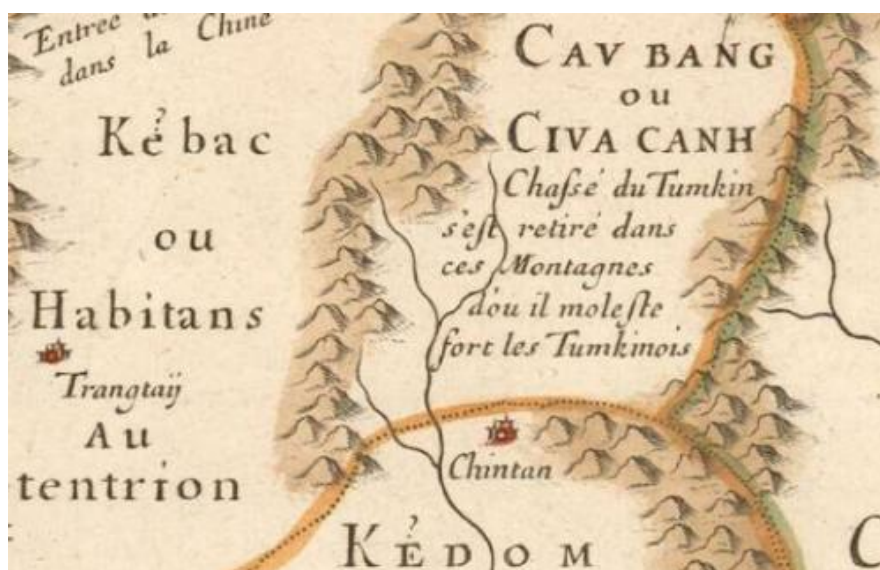 Entree
dans la Chine
Kẻ bac
ou
Habitans
Trangtaÿ
Au
tentrion
CAV BANG
ou
CIVA CANH
Chaſsé du Tumkin
s'eſt retiré dans
ces Montagnes
d'ou il moleſte
fort les Tumkinois
Chintan
KẺDOM
C